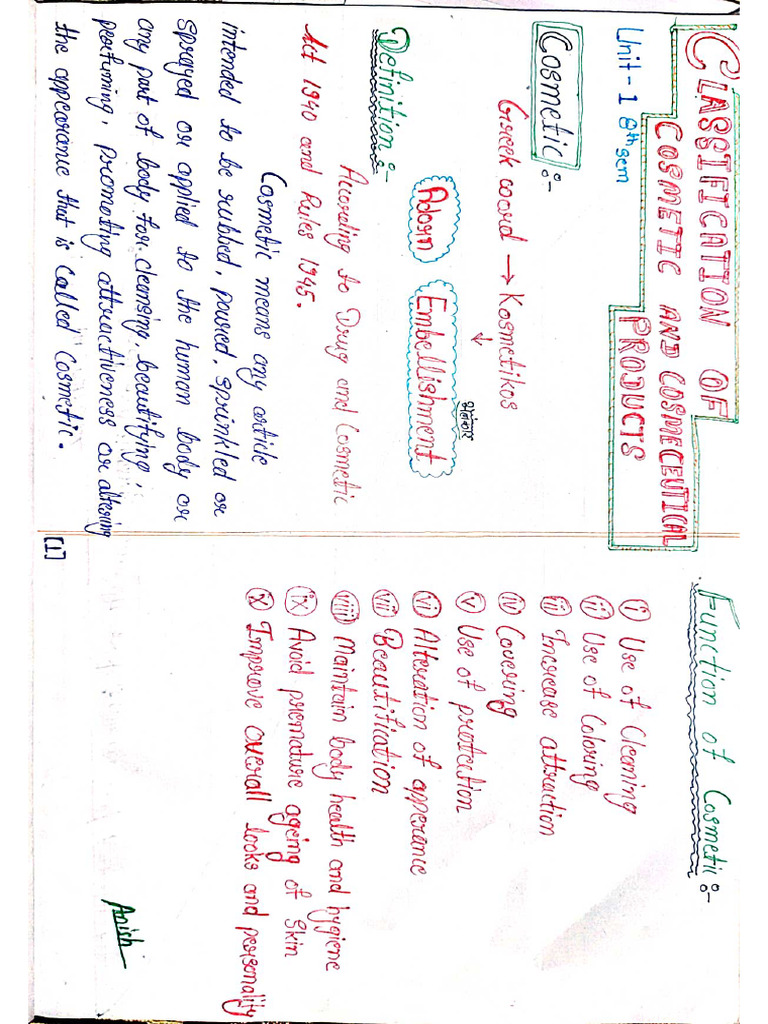 CLASSIFICATION OF
COSMETIC AND COSMECEUTICAL
PRODUCTS
Unit-1 8th sem
Cosmetic :-
Greek word → Kosmetikos
↓
अलंकार
Adorn Embellishment
Definition :-
According to Drug and Cosmetic
Act 1940 and Rules 1945.
Cosmetic means any article
intended to be rubbed, poured, sprinkled or
sprayed or applied to the human body or
any part of body for cleansing, beautifying,
perfuming, promoting attractiveness or altering
the appearance that is called Cosmetic.
[1]
Function of Cosmetic :-
(i) Use of Cleaning
(ii) Use of Coloring
(iii) Increase attraction
(iv) Covering
(v) Use of protection
(vi) Alteration of apperance
(vii) Beautification
(viii) Maintain body health and hygiene
(ix) Avoid premature ageing of Skin
(x) Improve overall looks and personality
Anish